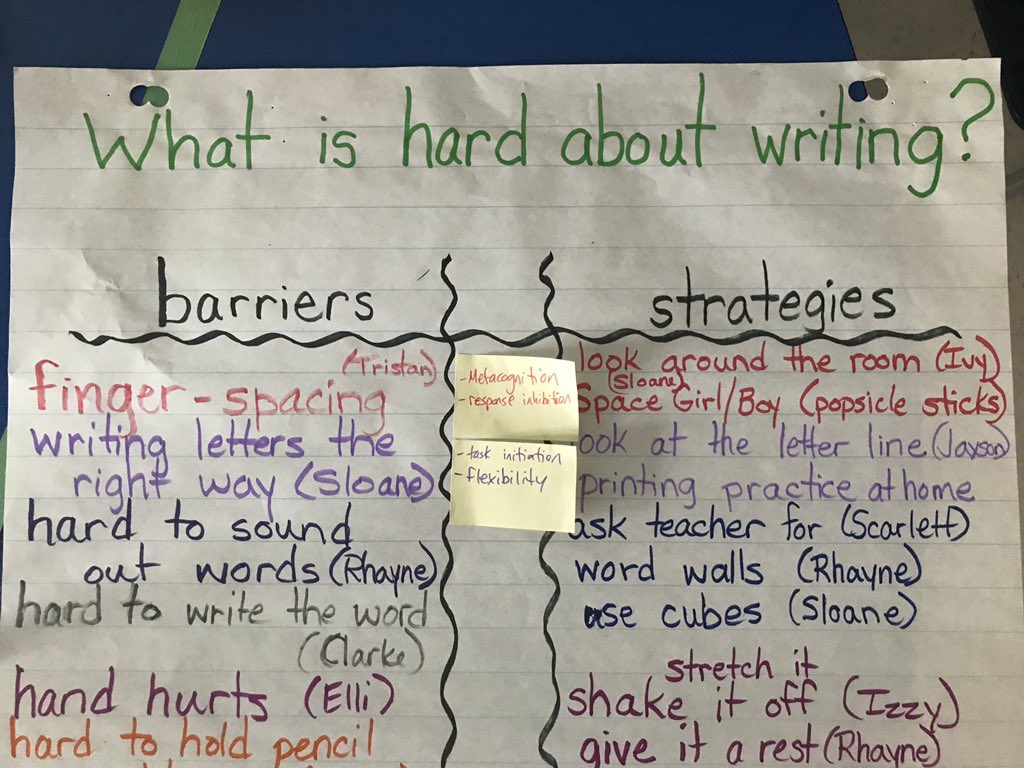 What is hard about writing?
barriers
strategies
(Tristan)
finger-spacing
writing letters the
right way (Sloane)
hard to sound
out words (Rhayne)
hard to write the word
(Clarke)
hand hurts (Elli)
hard to hold pencil
- Metacognition
- response inhibition
- task initiation
- flexibility
look around the room (Ivy)
(Sloane)
Space Girl/Boy (popsicle sticks)
look at the letter line (Jayson)
printing practice at home
ask teacher for (Scarlett)
word walls (Rhayne)
use cubes (Sloane)
stretch it
shake it off (Izzy)
give it a rest (Rhayne)